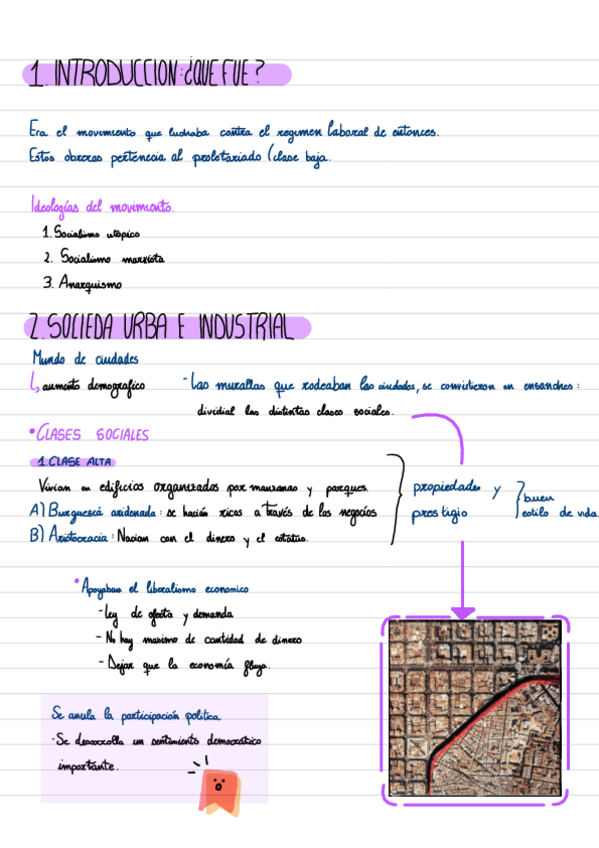 1. INTRODUCCION: ¿QUE FUE?
Era el movimiento que luchaba contra el regimen laboral de entonces.
Estos obreros pertenecia al proletariado (clase baja.
Ideologías del movimiento.
1. Socialismo utopico
2. Socialismo marxista
3. Anarquismo
2. SOCIEDA URBA E INDUSTRIAL
Mundo de ciudades
↳ aumento demografico
- Las murallas que rodeaban las ciudades, se convirtieron en ensanches:
dividial las distintas clases sociales.
• CLASES SOCIALES
1. CLASE ALTA
Vivian en edificios organizados por manzanas y parques.
A) Burguesia aridenada: se hacian ricos a través de los negocios
B) Aristocracia: Nacian con el dinero y el estatus.
propiedades y
prestigio
buen
estilo de vida.
• Apoyaban el liberalismo economico
- Ley de oferta y demanda
- No hay maximo de cantidad de dinero
- Dejar que la economía fluya.
Se anula la participación politica
- Se desarrolla un sentimiento democrático
importante.